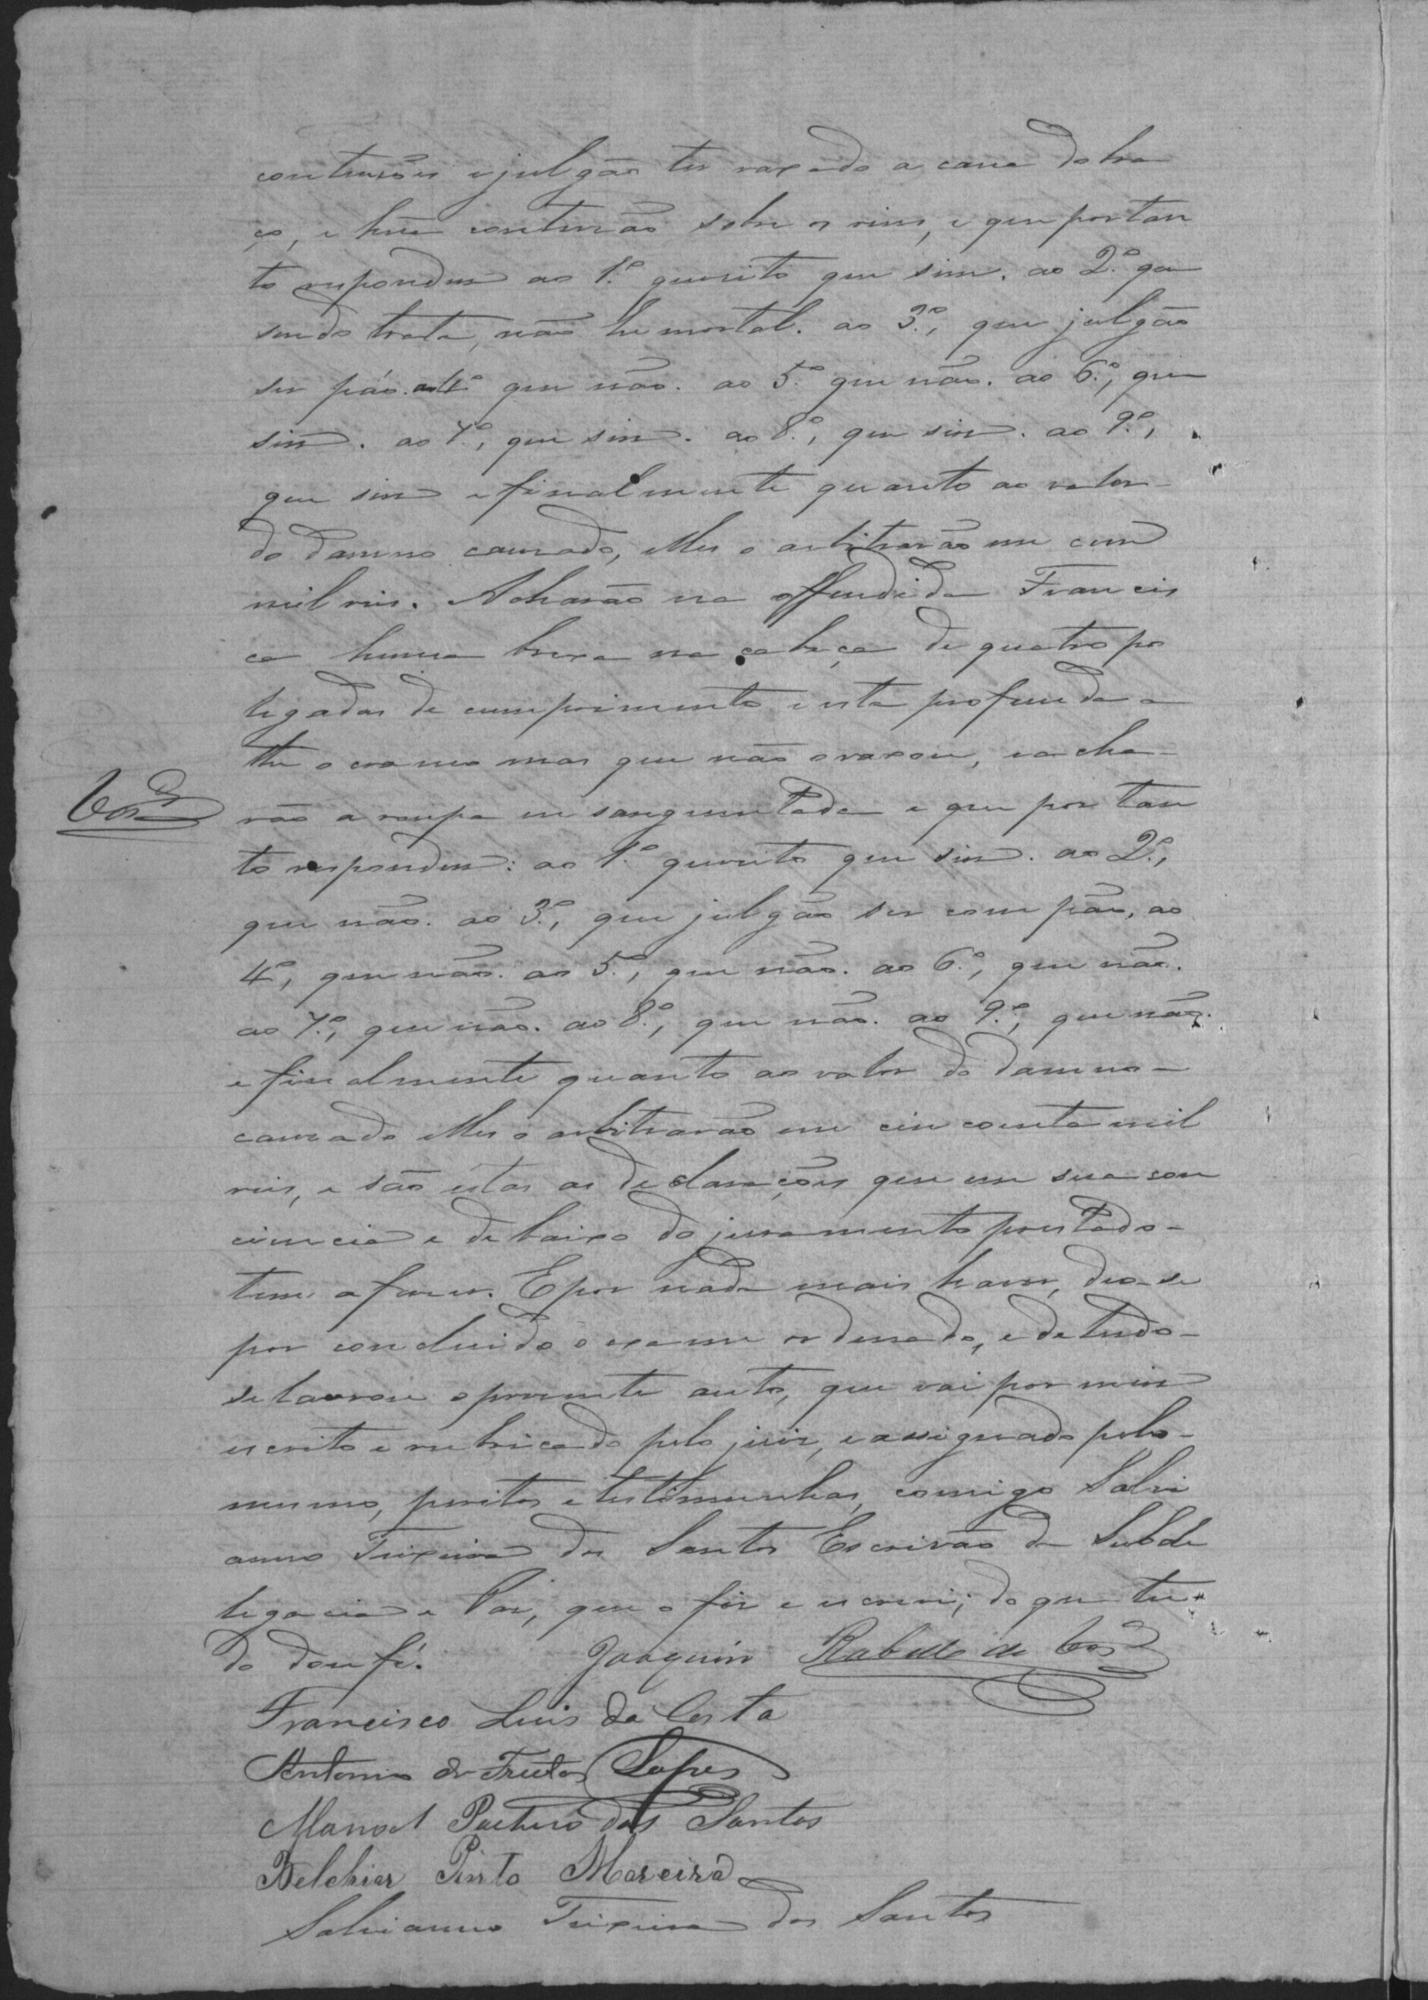 contusões e julgão ter raxado a cana do bra
ço, e hua contusão sobre os rins, e que portan
to respondem ao 1.º quesito que sim. ao 2.º que
sendo trata, não he mortal. ao 3.º, que julgão
ser páo. ao 4.º que não. ao 5.º que não. ao 6.º, que
sim. ao 7.º, que sim. ao 8.º, que sim. ao 9.º,
que sim e finalmente quanto ao valor
do damno causado, elles o arbitrarão em cem
mil reis. Acharão na offendida Francis
ca huma brexa na cabeça de quatro po
legadas de cumprimento e esta profunda a
the o craneo mas que não o raxou, e acha
rão a roupa ensanguentada e que por tan
to respondem: ao 1.º quesito que sim. ao 2.º,
que não. ao 3.º, que julgão ser com páo, ao
4º, que não. ao 5.º, que não. ao 6.º, que não.
ao 7.º, que não. ao 8.º, que não. ao 9.º, que não.
e finalmente quanto ao valor do damno
causado elles o arbitrarão em cincoenta mil
reis, e são estas as declarações que em sua con
ciencia e debaixo do juramento prestado
tem a fazer. E por nada mais haver, deo-se
por concluido o exame ordenado, e de tudo
se lavrou o presente auto, que vai por mim
escrito e rubricado pelo juiz, e assignado pelo
mesmo, peritos e testemunhas, comigo Salvi
anno Teixeira dos Santos Escrivão da Subde
legacia e Paz, que o fiz e escrevi; do que tu
do dou fé. Joaquim Rabello de
Francisco Luis da Costa
Antonio de Freitas Lopes
Manoel Pacheco dos Santos
Belchior Pinto Moreira
Salvianno Teixeira dos Santos